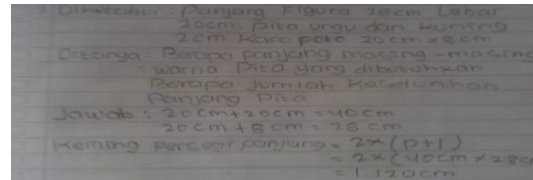 3 Diketahui: Panjang Figura 20cm Lebar
20cm, Pita ungu dan kuning
2cm. Kaca poto 20cm x 8cm
Ditanya: Berapa panjang masing-masing
warna Pita yang dibutuhkan
Berapa Jumlah Keseluruhan
Panjang Pita
Jawab: 20cm+20cm=40cm
20cm+8cm=28cm
Keliling Persegi panjang = 2x(p+l)
= 2x(40cm x 28cm
= 1.120cm